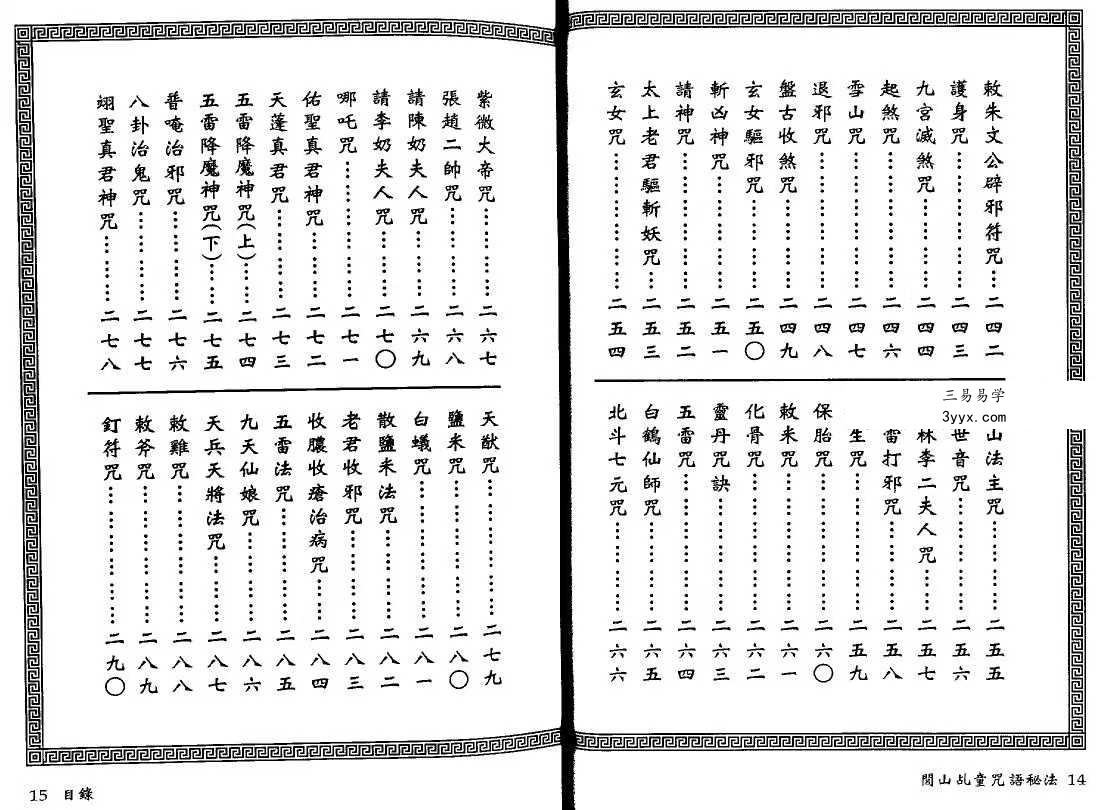 敕朱文公辟邪符咒……二四二
護身咒……二四三
九宮滅煞咒……二四四
起煞咒……二四六
雪山咒……二四七
退邪咒……二四八
盤古收煞咒……二四九
玄女驅邪咒……二五〇
斬凶神咒……二五一
請神咒……二五二
太上老君驅斬妖咒……二五三
玄女咒……二五四
三易易学
3yyx.com
山法主咒……二五五
世音咒……二五六
林李二夫人咒……二五七
雷打邪咒……二五八
生咒……二五九
保胎咒……二六〇
敕米咒……二六一
化骨咒……二六二
靈丹訣……二六三
五雷咒……二六四
白鶴仙師咒……二六五
北斗七元咒……二六六
閭山乩童咒語秘法 14
紫微大帝咒……二六七
張趙二帥咒……二六八
請陳奶夫人咒……二六九
請李奶夫人咒……二七〇
哪吒咒……二七一
佑聖真君神咒……二七二
天蓬真君咒……二七三
五雷降魔神咒(上)……二七四
五雷降魔神咒(下)……二七五
普唵治邪咒……二七六
八卦治鬼咒……二七七
翊聖真君神咒……二七八
天猷咒……二七九
鹽米咒……二八〇
白蟻咒……二八一
散鹽米法咒……二八二
老君收邪咒……二八三
收膿收瘡治病咒……二八四
五雷法咒……二八五
九天仙娘咒……二八六
天兵天將法咒……二八七
敕雞咒……二八八
敕斧咒……二八九
釘符咒……二九〇
15 目錄